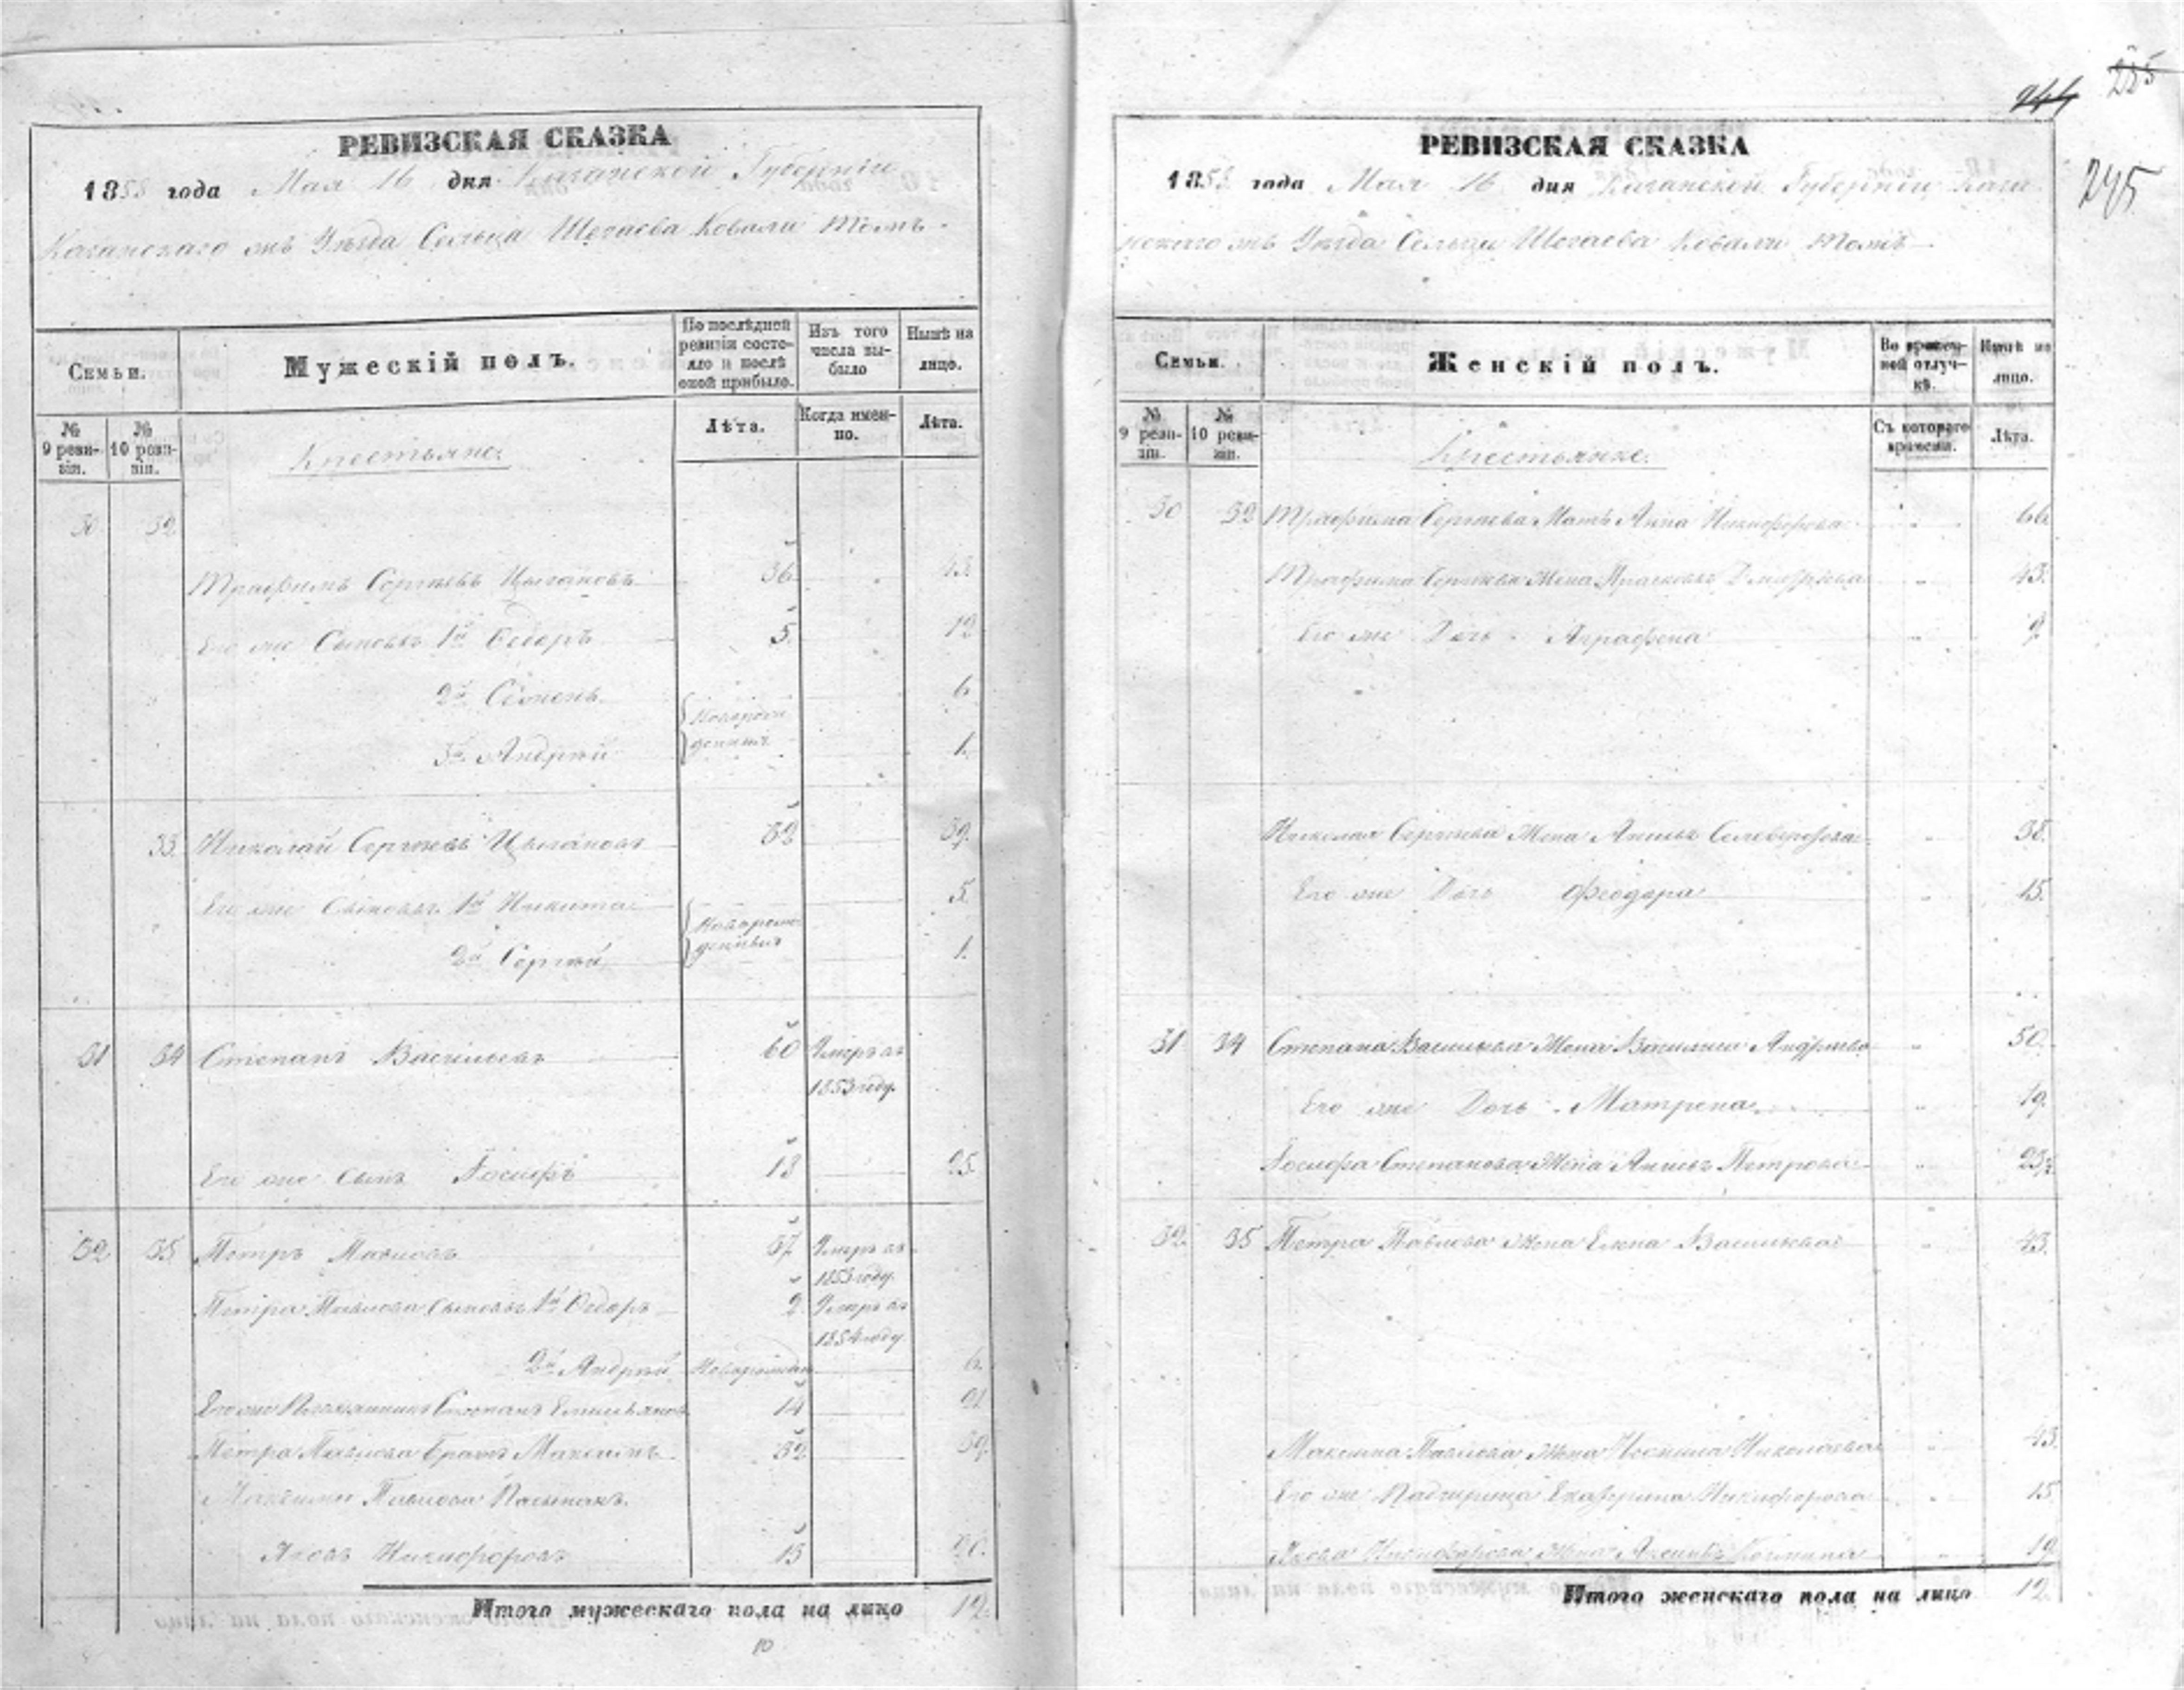 РЕВИЗСКАЯ СКАЗКА
1858 года Мая 16 дня Казанской Губерніи
Казанскаго Уѣзда Сельца Шегаева Ковали тожъ
Семьи.
Мужескій полъ.
По послѣдней ревизіи состояло и послѣ оной прибыло.
Изъ того числа выбыло
Нынѣ на лицо.
№ 9 ревизіи.
№ 10 ревизіи.
Лѣта.
Когда именно.
Лѣта.
Крестьяне
30 32
Трафимъ Сергѣевъ Цыгановъ 36
Его же Сыновья 1й Ѳедоръ 5. 12
2й Семенъ 6
3й Андрей 1.
33 Николай Сергѣевъ Цыгановъ 32 39.
Его же Сыновья 1й Никита 5.
2й Сергѣй 1.
31 34 Степанъ Васильевъ 60 Умеръ въ
1853 году.
Его же сынъ Іосифъ 18 25.
32 35 Петръ Павловъ 37 Умеръ въ
1853 году.
Петра Павлова Сыновья 1й Ѳедоръ 2 Умеръ въ
1854 году
2й Андрей 6.
Его же Племянникъ Степанъ Емельяновъ 14 21
Петра Павлова Братъ Максимъ 32 39.
Максима Павлова Пасынокъ
Яковъ Никифоровъ 13 20.
Итого мужескаго пола на лицо 12.
10
244 235
245
РЕВИЗСКАЯ СКАЗКА
1858 года Мая 16 дня Казанской Губерніи Каза
нскаго Уѣзда Сельца Шегаева Ковали тожъ
Семьи.
Женскій полъ.
Во временной отлучкѣ.
Нынѣ на лицо.
№ 9 ревизіи.
№ 10 ревизіи.
Съ котораго времени.
Лѣта.
Крестьянке.
30 32 Трафима Сергѣева Мать Анна Никифорова 66
Трафима Сергѣева Жена 43.
Его же Дочь Аграфена 9.
Николая Сергѣева Жена 38.
Его же Дочь Феодора 15.
31 34 Степана Васильева Жена Василиса Андреева 50.
Его же Дочь Матрена 19.
Іосифа Степанова Жена Петрова
32 35 Петра Павлова Жена Елена Васильева 43.
Максима Павлова Жена Николаева 43.
Его же Падчирица Екатерина Никифорова 15
Якова Никифорова Жена 19
Итого женскаго пола на лицо 12.